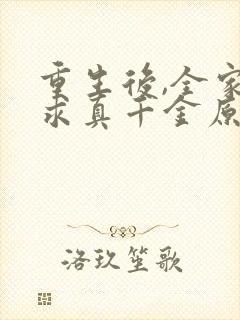 重生後,全家
求真千金原
洛玖笙歌